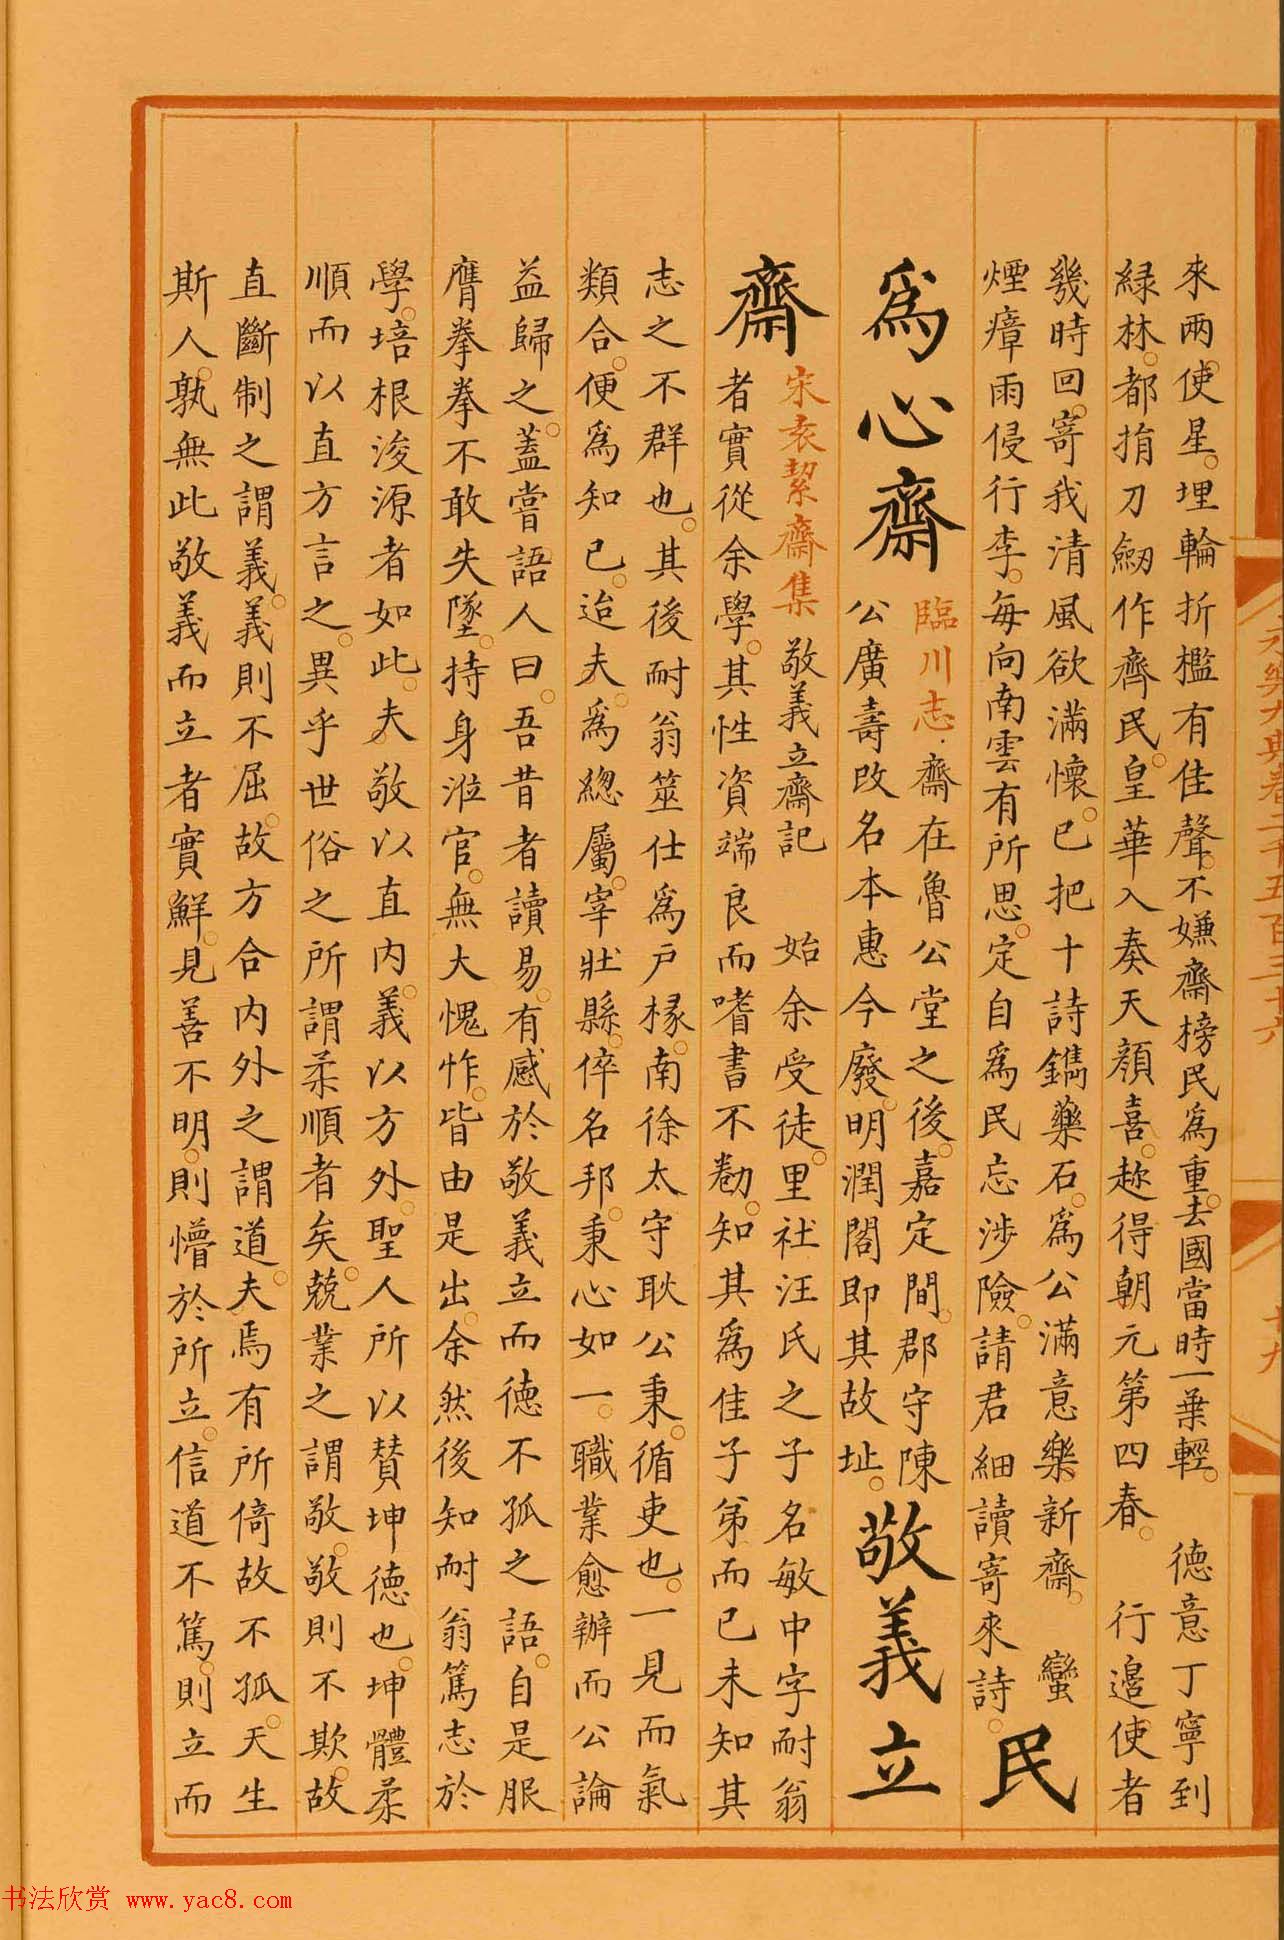 來兩使星。埋輪折檻有佳聲。不嫌齋榜民爲重。去國當時一葉輕。 德意丁寧到
綠林。都捐刀劒作齊民。皇華入奏天顏喜。趂得朝元第四春。 行邉使者
幾時回。寄我清風欲滿懷。已把十詩鐫藥石。爲公滿意樂新齋。 蠻
煙瘴雨侵行李。每向南雲有所思。定自爲民忘涉險。請君細讀寄來詩。
民
爲心齋
臨川志.齋在魯公堂之後。嘉定間。郡守陳
公廣壽改名本惠今廢。明潤閣即其故址。
敬義立
齋
宋袁絜齋集 敬義立齋記 始余受徒。里社汪氏之子名敏中字耐翁
者實從余學。其性資端良而嗜書不勌。知其爲佳子弟而已未知其
志之不群也。其後耐翁筮仕爲戶椽。南徐太守耿公秉。循吏也。一見而氣
類合。便爲知已。迨夫。爲總屬。宰壯縣。倅名邦。秉心如一。職業愈辦而公論
益歸之。蓋嘗語人曰。吾昔者讀易。有感於敬義立而德不孤之語。自是服
膺拳拳不敢失墜。持身涖官。無大愧怍。皆由是出。余然後知耐翁篤志於
學。培根浚源者如此。夫敬以直内。義以方外。聖人所以賛坤德也。坤體柔
順而以直方言之。異乎世俗之所謂柔順者矣。兢業之謂敬。敬則不欺。故
直斷制之謂義。義則不屈。故方合内外之謂道。夫焉有所倚故不孤。天生
斯人。孰無此敬義而立者實鮮。見善不明。則懵於所立。信道不篤。則立而
永樂大典卷二千五百三十六
十九
书法欣赏 www.yac8.com